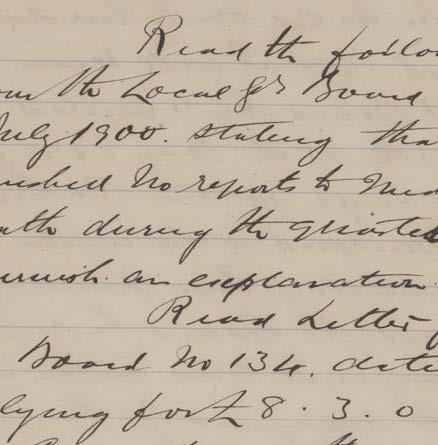 Read the follo
om the Local Gt Board
July 1900. stating tha
nished No reports to Med
alth during the quarte
urnish an explanation
Read Letter
Board No 134. date
lying for £ 8 . 3 . 0